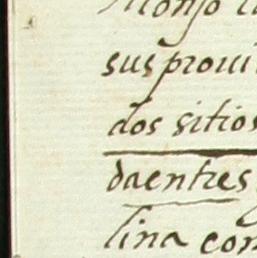 Alonso
sus proui
dos sitios
daentres
lina con